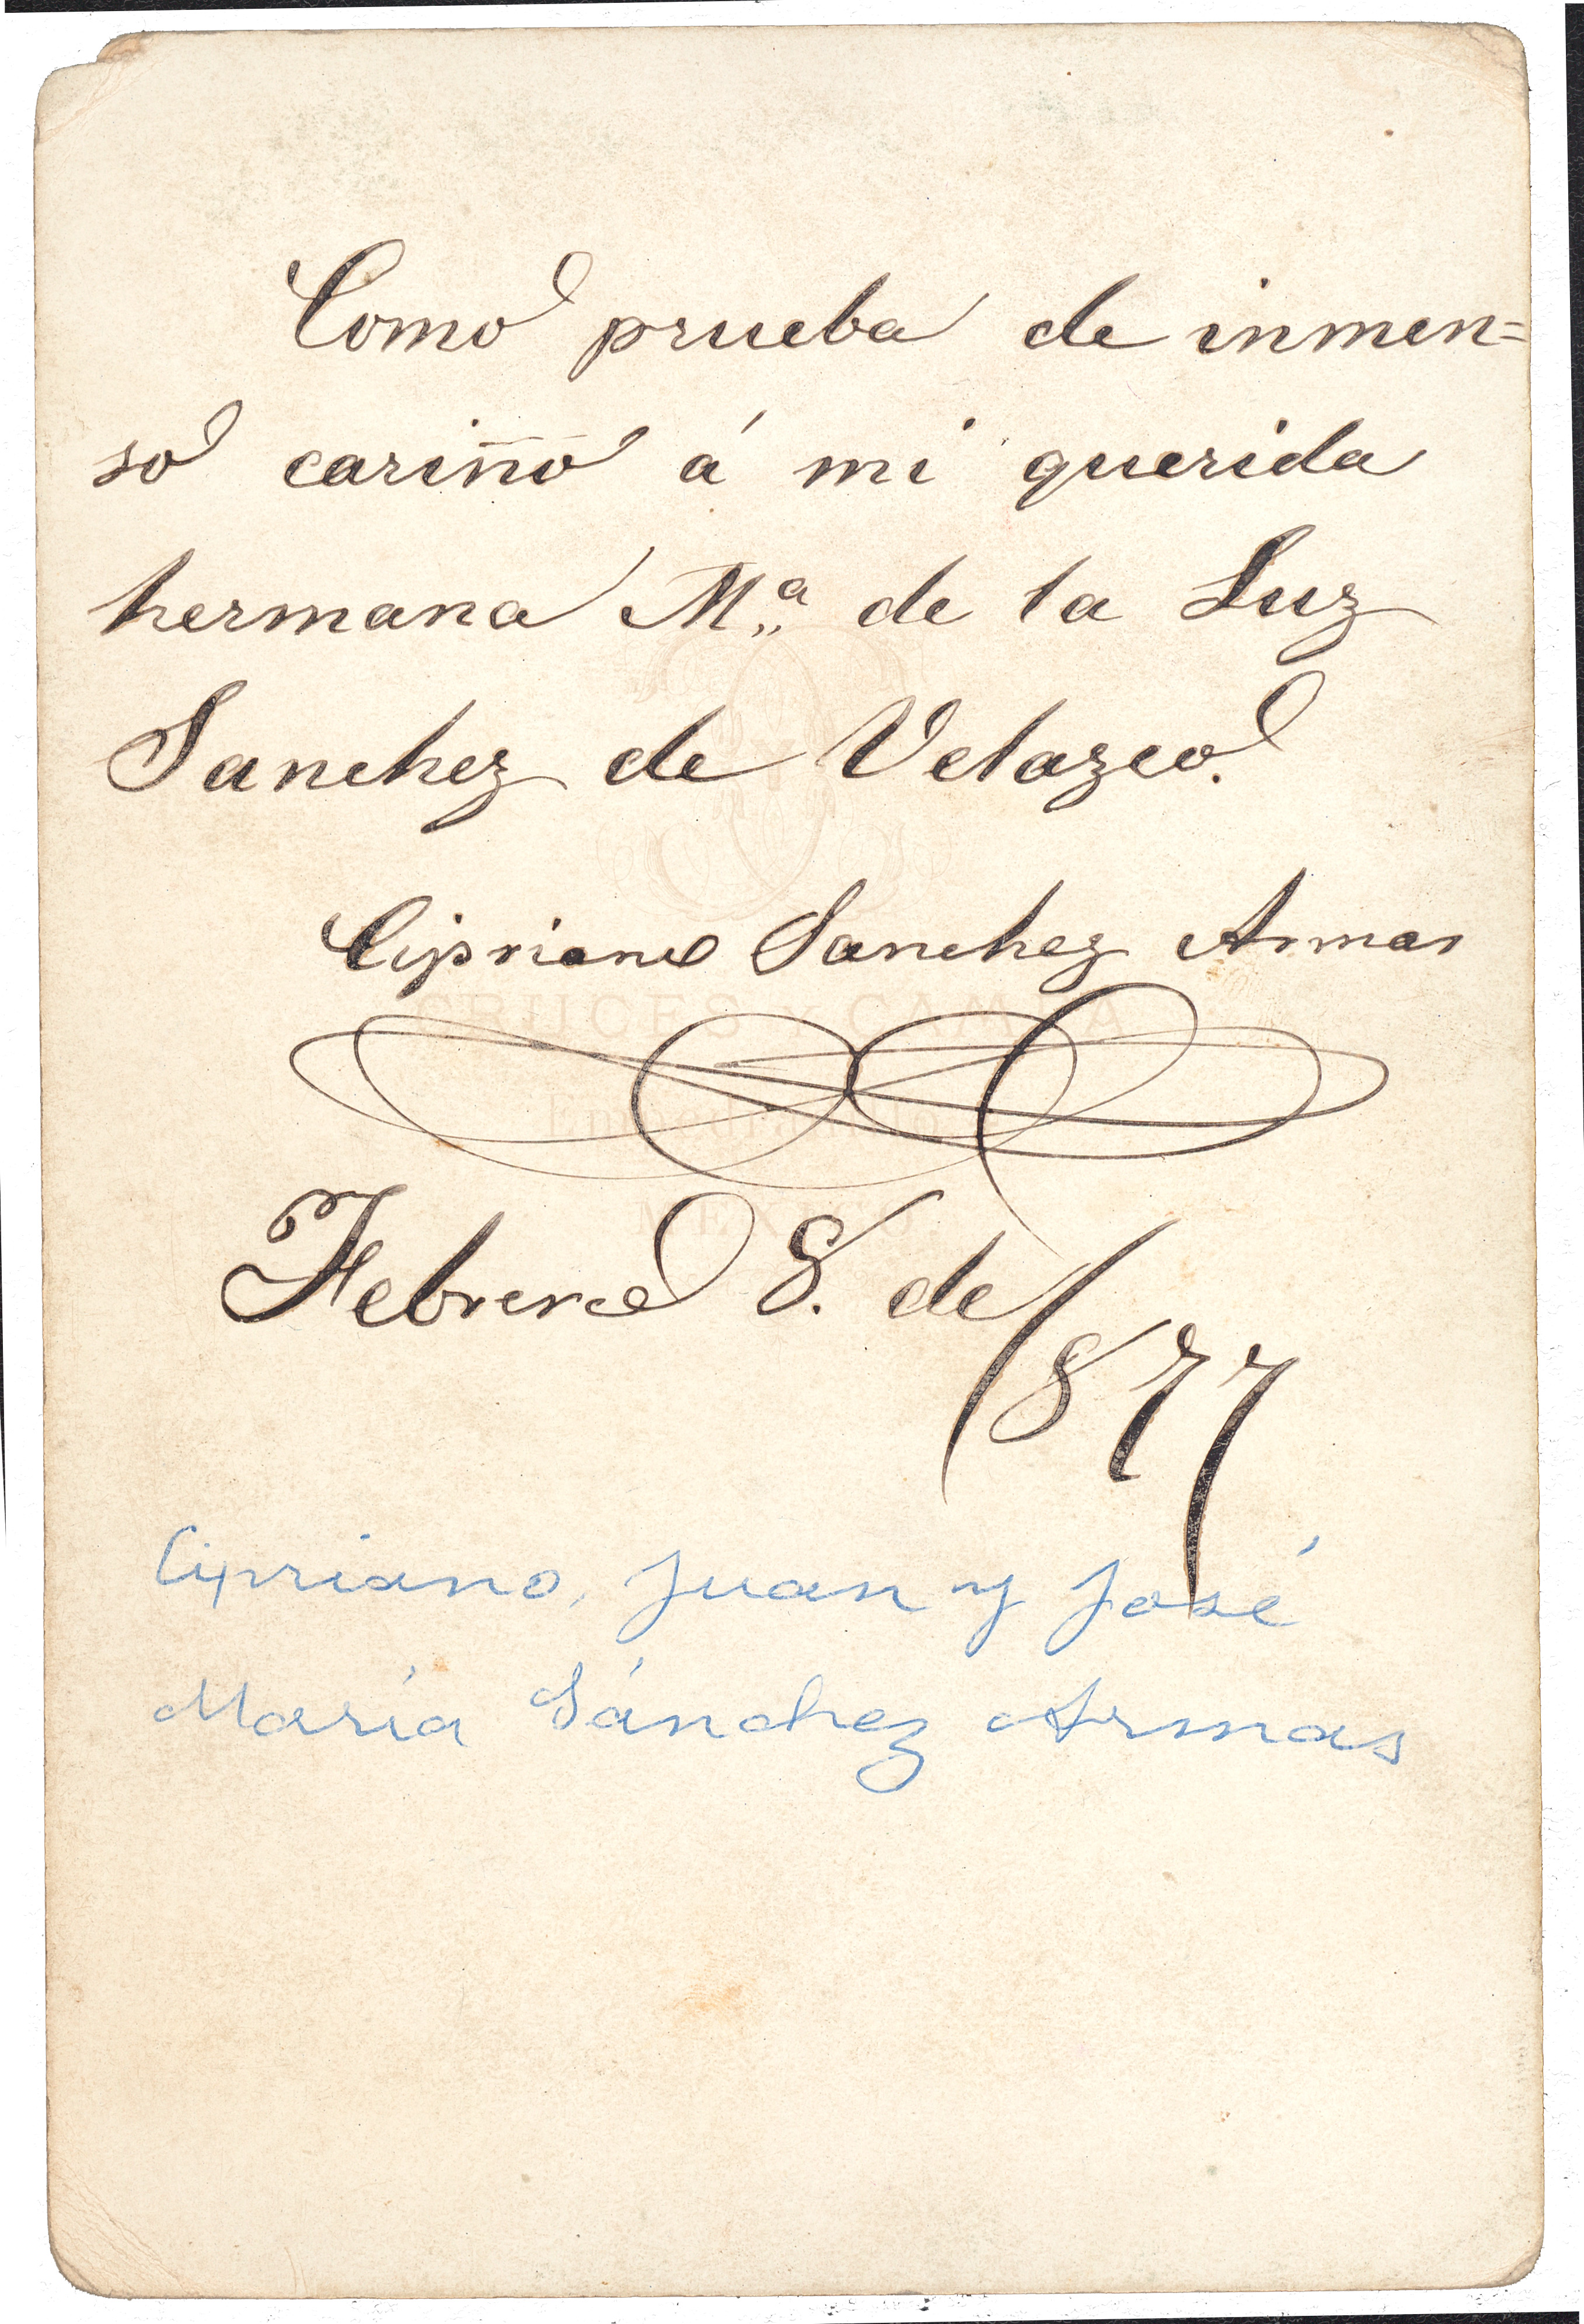 Como prueba de inmen=
so cariño á mi querida
hermana M.ª de la Luz
Sanchez de Velazco.
Cipriano Sanchez Armas
CRUCES Y CAMPA
MEXICO
Febrero 8. de
1877
Cipriano, Juan y José
María Sánchez Armas